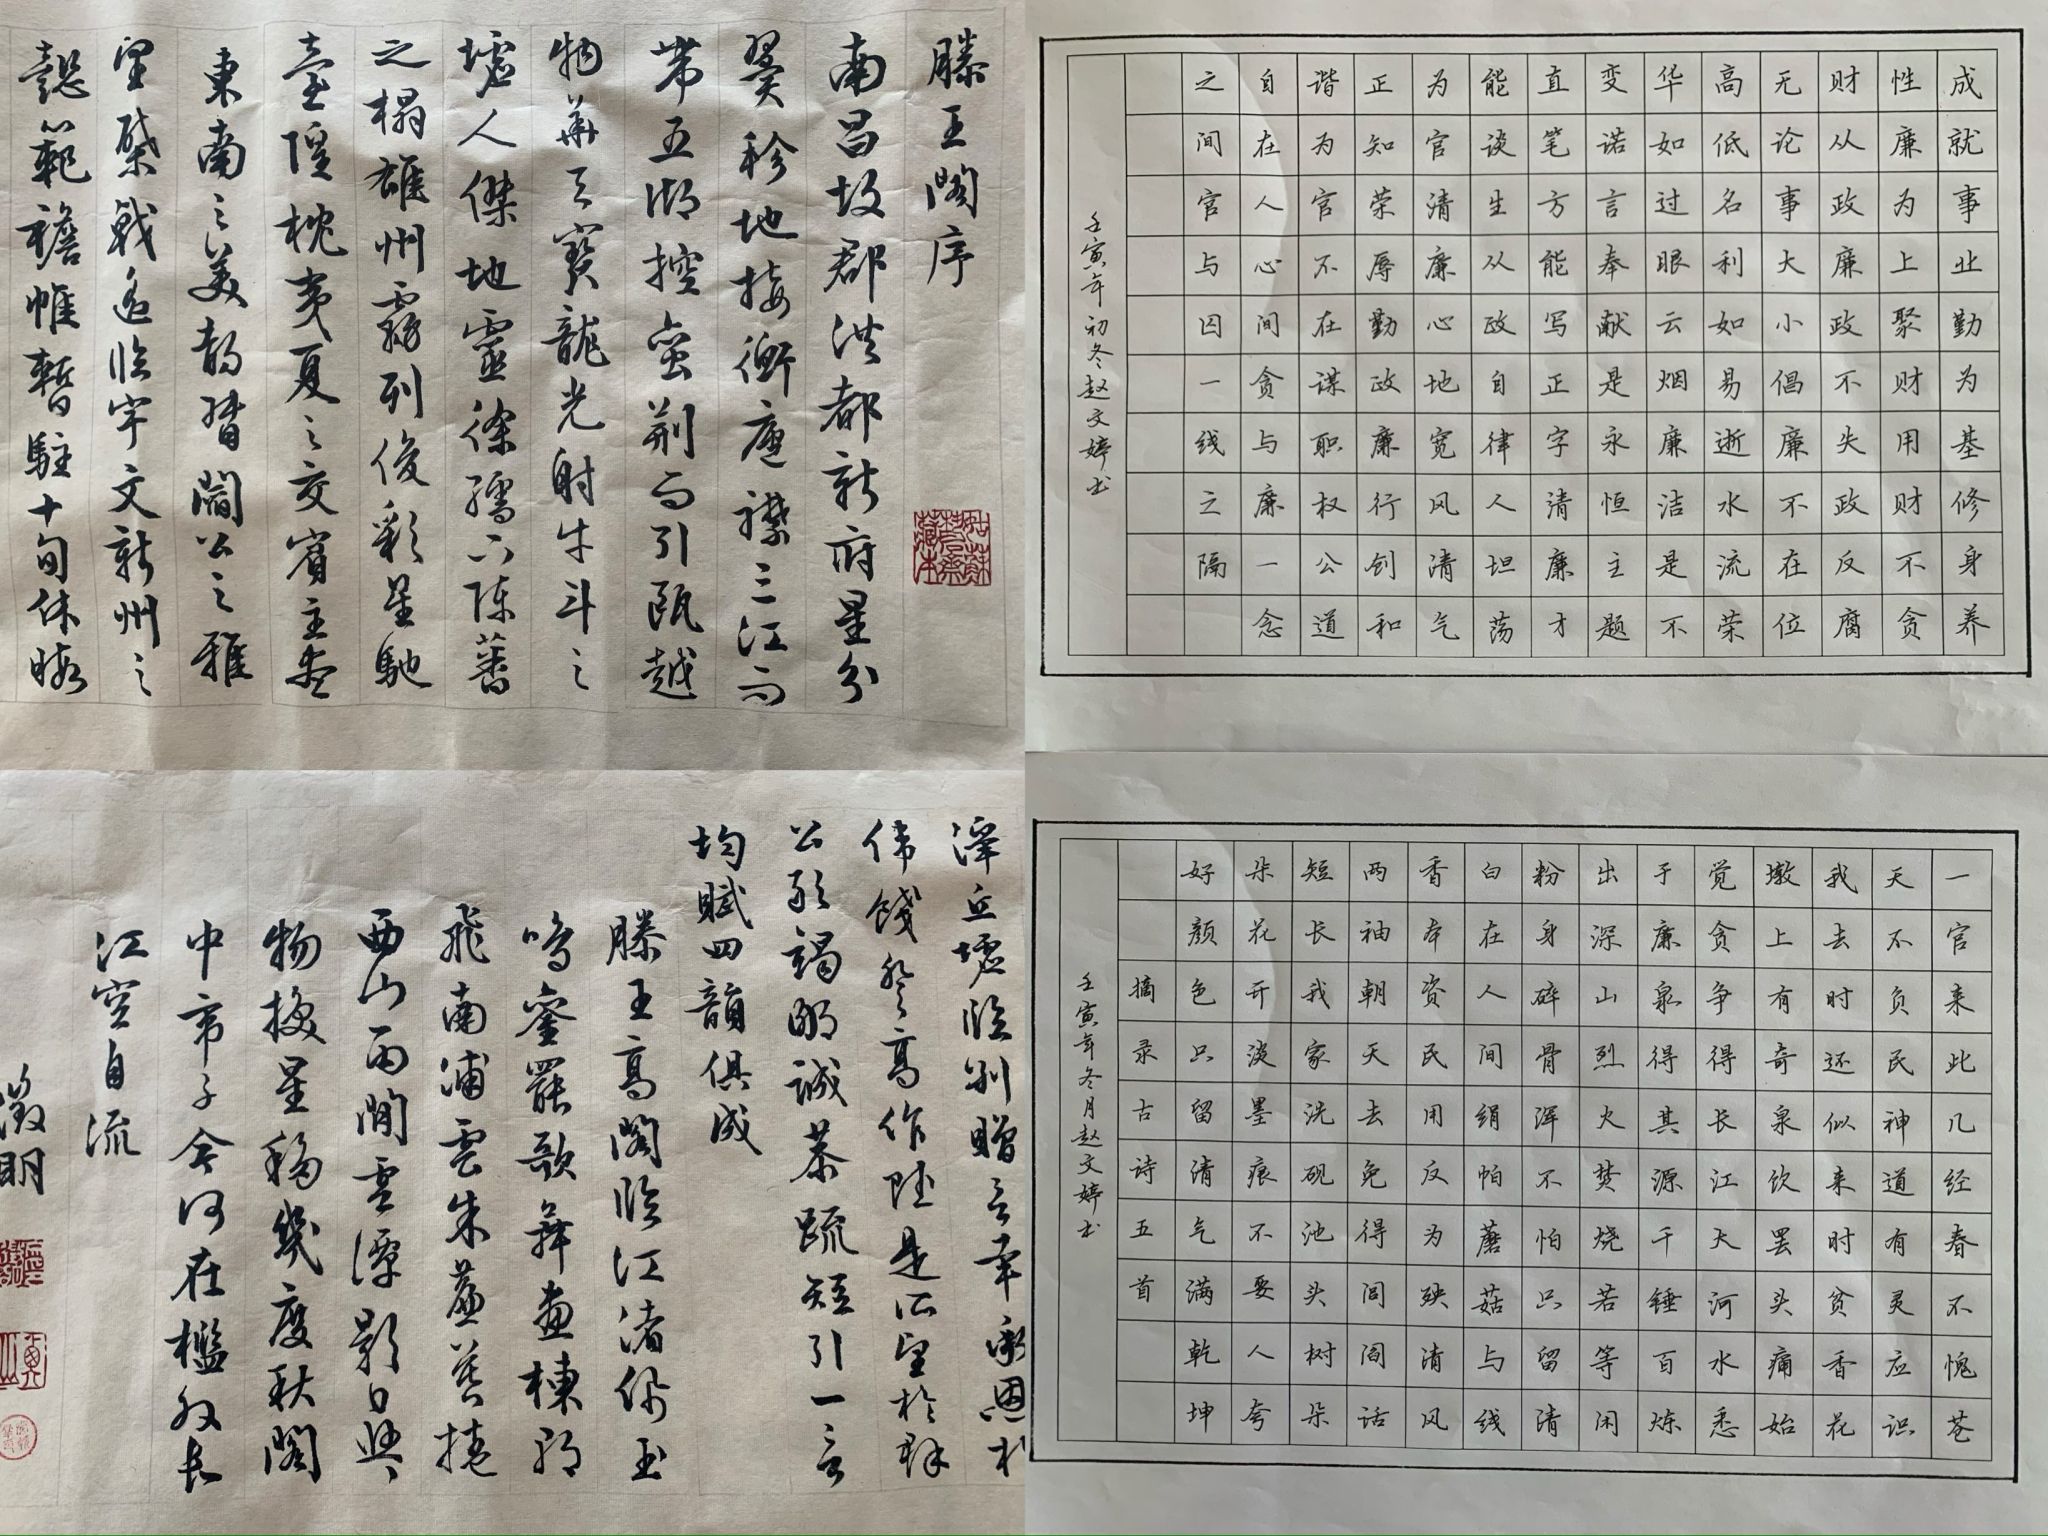 滕王阁序
南昌故郡洪都新府星分
翼軫地接衡廬襟三江而
带五湖控蛮荆而引甌越
物華天寳龍光射牛斗之
墟人傑地靈徐孺下陳蕃
之榻雄州霧列俊彩星馳
臺隍枕夷夏之交賓主盡
東南之美都督閻公之雅
望棨戟遥临宇文新州之
懿範襜帷暫駐十旬休暇
成就事业勤为基修身养
性廉为上聚财用财不贪
财从政廉政不失政反腐
无论事大小倡廉不在位
高低名利如易逝水流荣
华如过眼云烟廉洁是不
变诺言奉献是永恒主题
直笔方能写正字清廉才
能谈生从政自律人坦荡
为官清廉心地宽风清气
正知荣辱勤政廉行创和
谐为官不在谋职权公道
自在人心间贪与廉一念
之间官与囚一线之隔
壬寅年初冬赵文婷书
泽丘墟临别贈言幸承恩於
伟餞登高作賦是所望於群
公敢竭鄙誠恭疏短引一言
均賦四韻俱成
滕王高閣临江渚佩玉
鸣鑾罷歌舞畫棟朝
飛南浦雲朱簾暮捲
西山雨閒雲潭影日悠
物换星移幾度秋閣
中帝子今何在檻外長
江空自流
徵明
一官来此几经春不愧苍
天不负民神道有灵应识
我去时还似来时贫香花
墩上有奇泉饮罢头痛始
觉贪争得长江大河水悉
于廉泉得其源千锤百炼
出深山烈火焚烧若等闲
粉身碎骨浑不怕只留清
白在人间绢帕蘑菇与线
香本资民用反为殃清风
两袖朝天去免得闾阎话
短长我家洗砚池头树朵
朵花开淡墨痕不要人夸
好颜色只留清气满乾坤
摘录古诗五首
壬寅年冬月赵文婷书